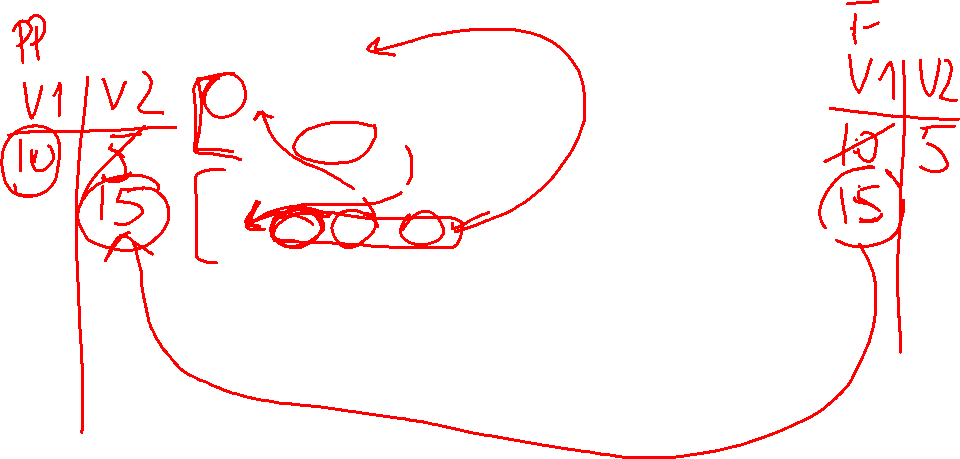 PP
V1 V2
10 5
15
F
V1 V2
10 5
15